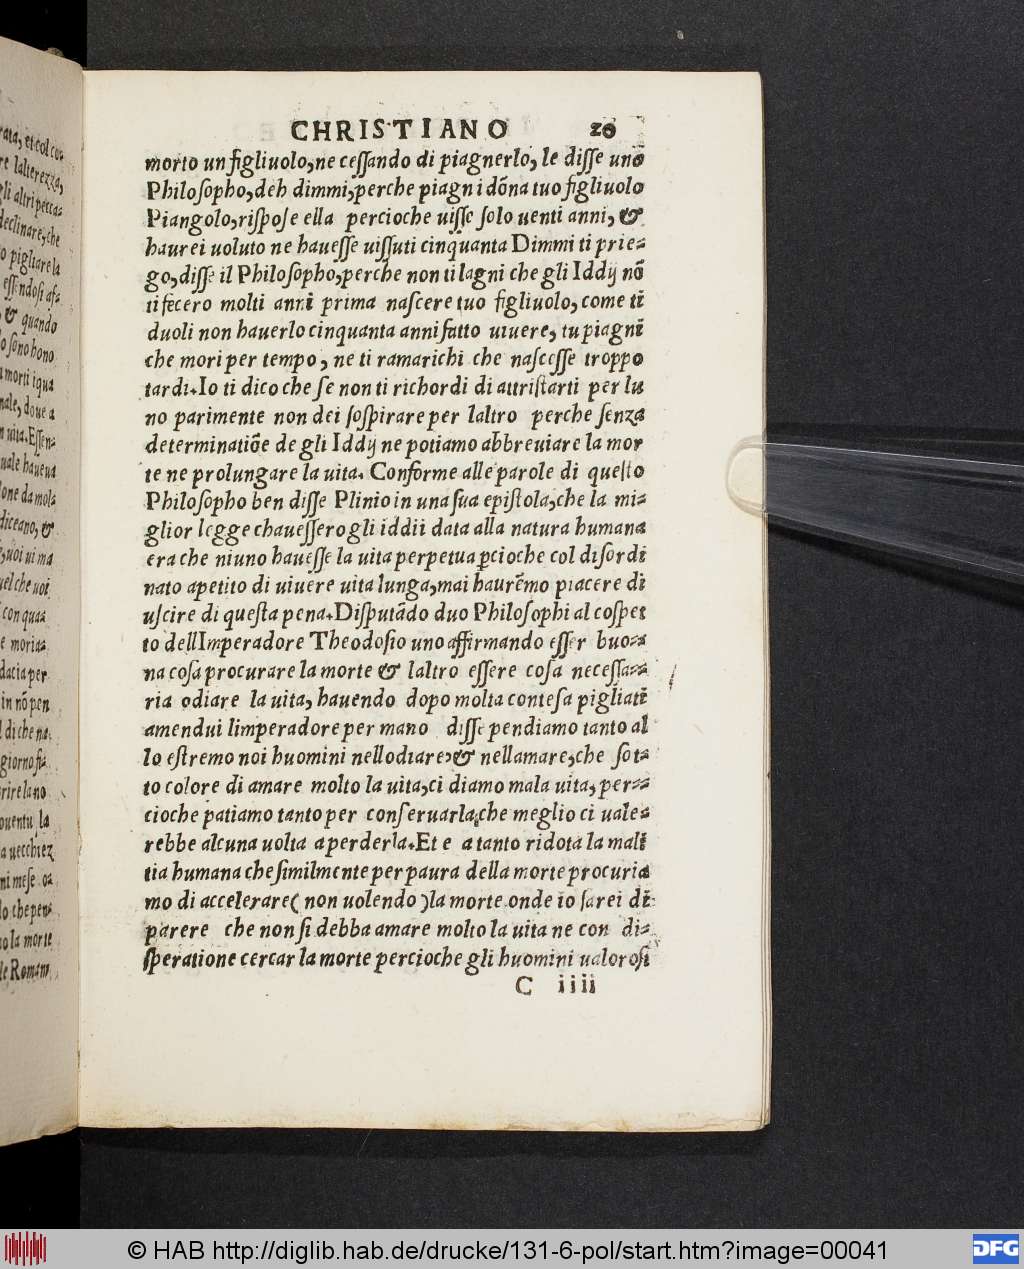 rata, et col co-
re lalterezza,
gli altri pecca-
declinare, che
o pigliare la
essendosi af-
, & quando
o sono hono
morti i qua
nale, doue a
uita. Essen-
uale haueua
one da mola
diceano, &
, uoi ui ma
uel che uoi
con quas
e morias
dacia per
in nõ pen
di che na
giorno fu-
rire la no
ouentu la
a uecchiez
ni mese o-
lo che pen-
no la morte
le Romani
CHRISTIANO 20
morto un figliuolo, ne cessando di piagnerlo, le disse uno
Philosopho, deh dimmi, perche piagni dõna tuo figliuolo
Piangolo, rispose ella percioche uisse solo uenti anni, &
haurei uoluto ne hauesse uissuti cinquanta Dimmi ti prie-
go, disse il Philosopho, perche non ti lagni che gli Iddij nõ
ti fecero molti anni prima nascere tuo figliuolo, come ti
duoli non hauerlo cinquanta anni fatto uiuere, tu piagni
che mori per tempo, ne ti ramarichi che nascesse troppo
tardi. Io ti dico che se non ti richordi di attristarti per lu
no parimente non dei sospirare per laltro perche senza
determinatiõe de gli Iddij ne potiamo abbreuiare la mor
te ne prolungare la uita. Conforme alle parole di questo
Philosopho ben disse Plinio in una sua epistola, che la mi-
glior legge chauessero gli iddii data alla natura humana
era che niuno hauesse la uita perpetua ꝑcioche col disordi
nato apetito di uiuere uita lunga, mai haurẽmo piacere di
uscire di questa pena. Disputãdo duo Philosophi al cospet
to dellImperadore Theodosio uno affirmando esser buo-
na cosa procurare la morte & laltro essere cosa necessa-
ria odiare la uita, hauendo dopo molta contesa pigliati
amendui limperadore per mano disse pendiamo tanto al
lo estremo noi huomini nellodiare, & nellamare, che sot-
to colore di amare molto la uita, ci diamo mala uita, per-
cioche patiamo tanto per conseruarla, che meglio ci uale-
rebbe alcuna uolta a perderla. Et e a tanto ridota la mali
tia humana che similmente per paura della morte procuria
mo di accelerare ( non uolendo ) la morte onde io sarei di
parere che non si debba amare molto la uita ne con di-
speratione cercar la morte percioche gli huomini ualorosi
C iiii
© HAB http://diglib.hab.de/drucke/131-6-pol/start.htm?image=00041
DFG